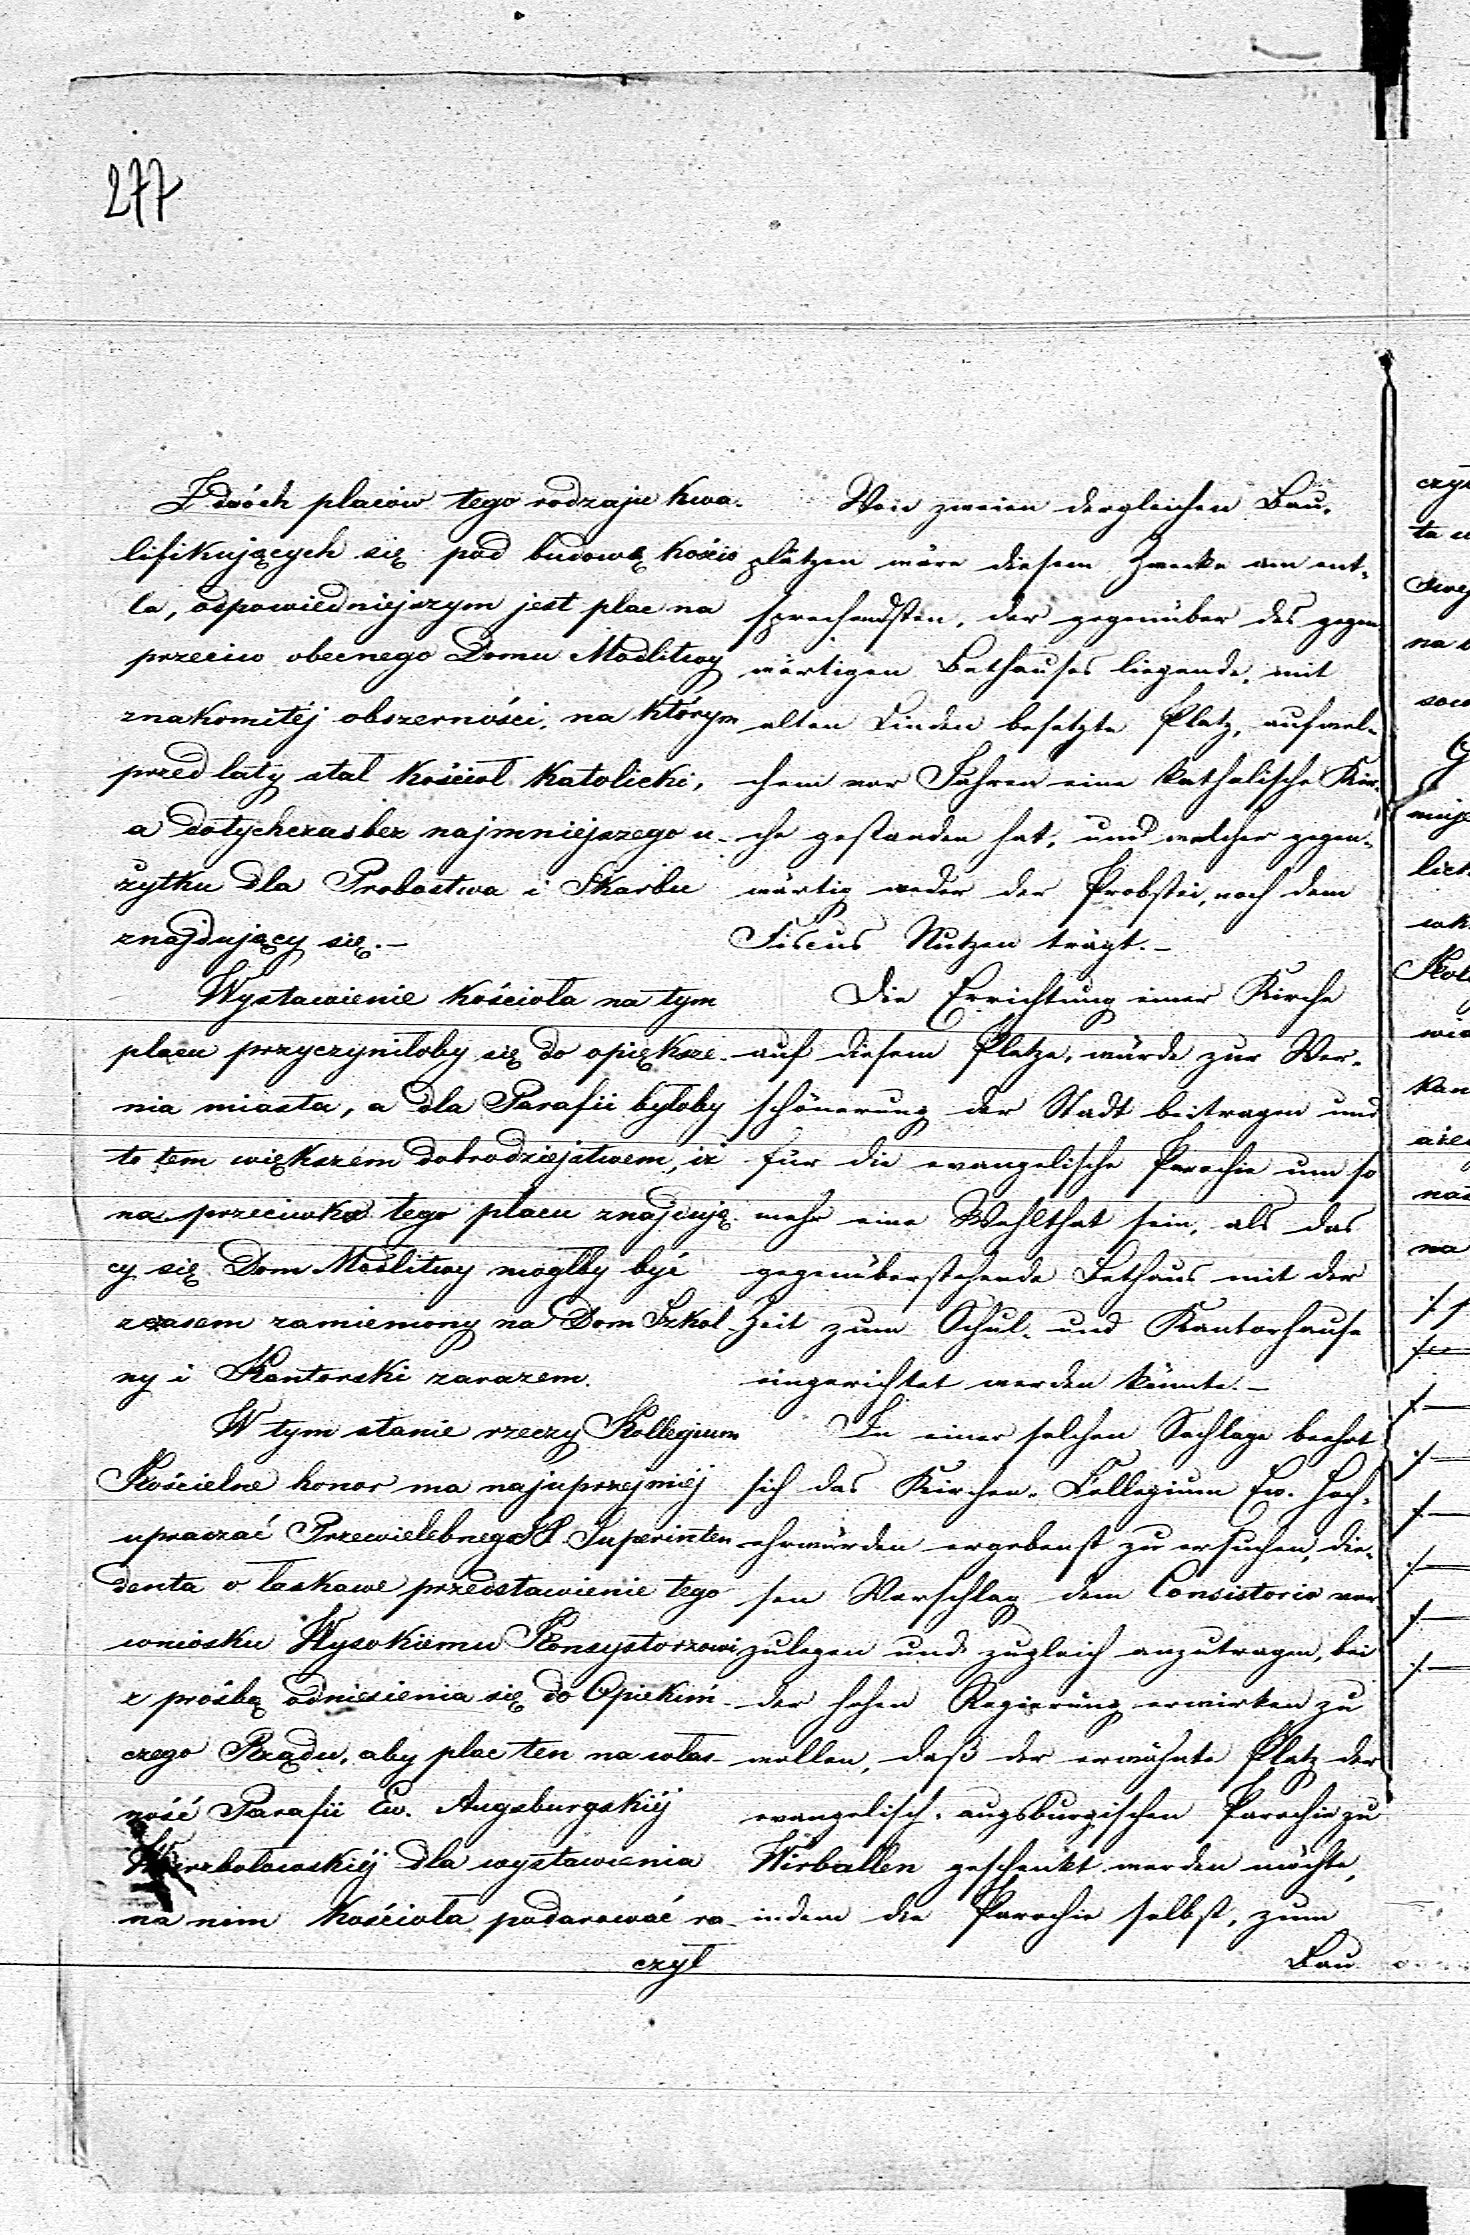 277
Z dwóch placów tego rodzaju kwa-
lifikujących się pod budowę kościo
ła, odpowiedniejszym jest plac na
przeciw obecnego Domu Modlitwy
znakomitéj obszerności, na którym
przed laty stał kościoł katolicki,
a dotychczas bez najmniejszego u-
żytku dla Probostwa i Skarbu
znajdujący się.—
Wystawienie kościoła na tym
placu przyczyniłoby się do opiększe-
nia miasta, a dla Parafii byłoby
to tem większem dobrodziejstwem, iż
na przeciwko tego placu znajdują-
cy się Dom Modlitwy mógłby być
z czasem zamieniony na Dom Szkol-
ny i Kantorski zarazem.
W tym stanie rzeczy Kollegium
Kościelne honor ma najuprzejmiéj
upraszać Przewielebnego X. Superinten
denta o łaskawe przedstawienie tego
wniosku Wysokiemu Konsystorzowi
z prośbą odniesienia się do Opiekuń-
czego Rządu, aby plac ten na włas-
ność Parafii Ew. Augsburgskiéj
Wierzbołowskiéj dla wystawienia
na nim kościoła podarować ra-
czył
Von zweien dergleichen Bau-
plätzen wäre diesem Zwecke am ent-
sprechendsten, der gegenüber des gegen
wärtigen Bethauses liegende, mit
alten Linden besetzte Platz, auf wel-
chem vor Jahren eine katholische Kir-
che gestanden hat, und welcher gegen-
wärtig weder der Probstei, noch dem
Fiscus Nutzen trägt.—
Die Errichtung einer Kirche
auf diesem Platze, würde zur Ver-
schönerung der Stadt beitragen und
für die evangelische Parochie um so
mehr eine Wohlthat sein, als das
gegenüberstehende Bethaus mit der
Zeit zum Schul- und Kantorhause
eingerichtet werden könnte.—
In einer solchen Sachlage beehrt
sich das Kirchen-Collegium Ew. Hoch-
ehrwürden ergebenst zu ersuchen, die-
sen Vorschlag dem Consistorio vor
zulegen und zugleich anzutragen, bei
der hohen Regierung erwirken zu
wollen, daß der erwähnte Platz der
evangelisch-augsburgischen Parochie zu
Wirballen geschenkt werden möchte,
indem die Parochie selbst, zum
Bau